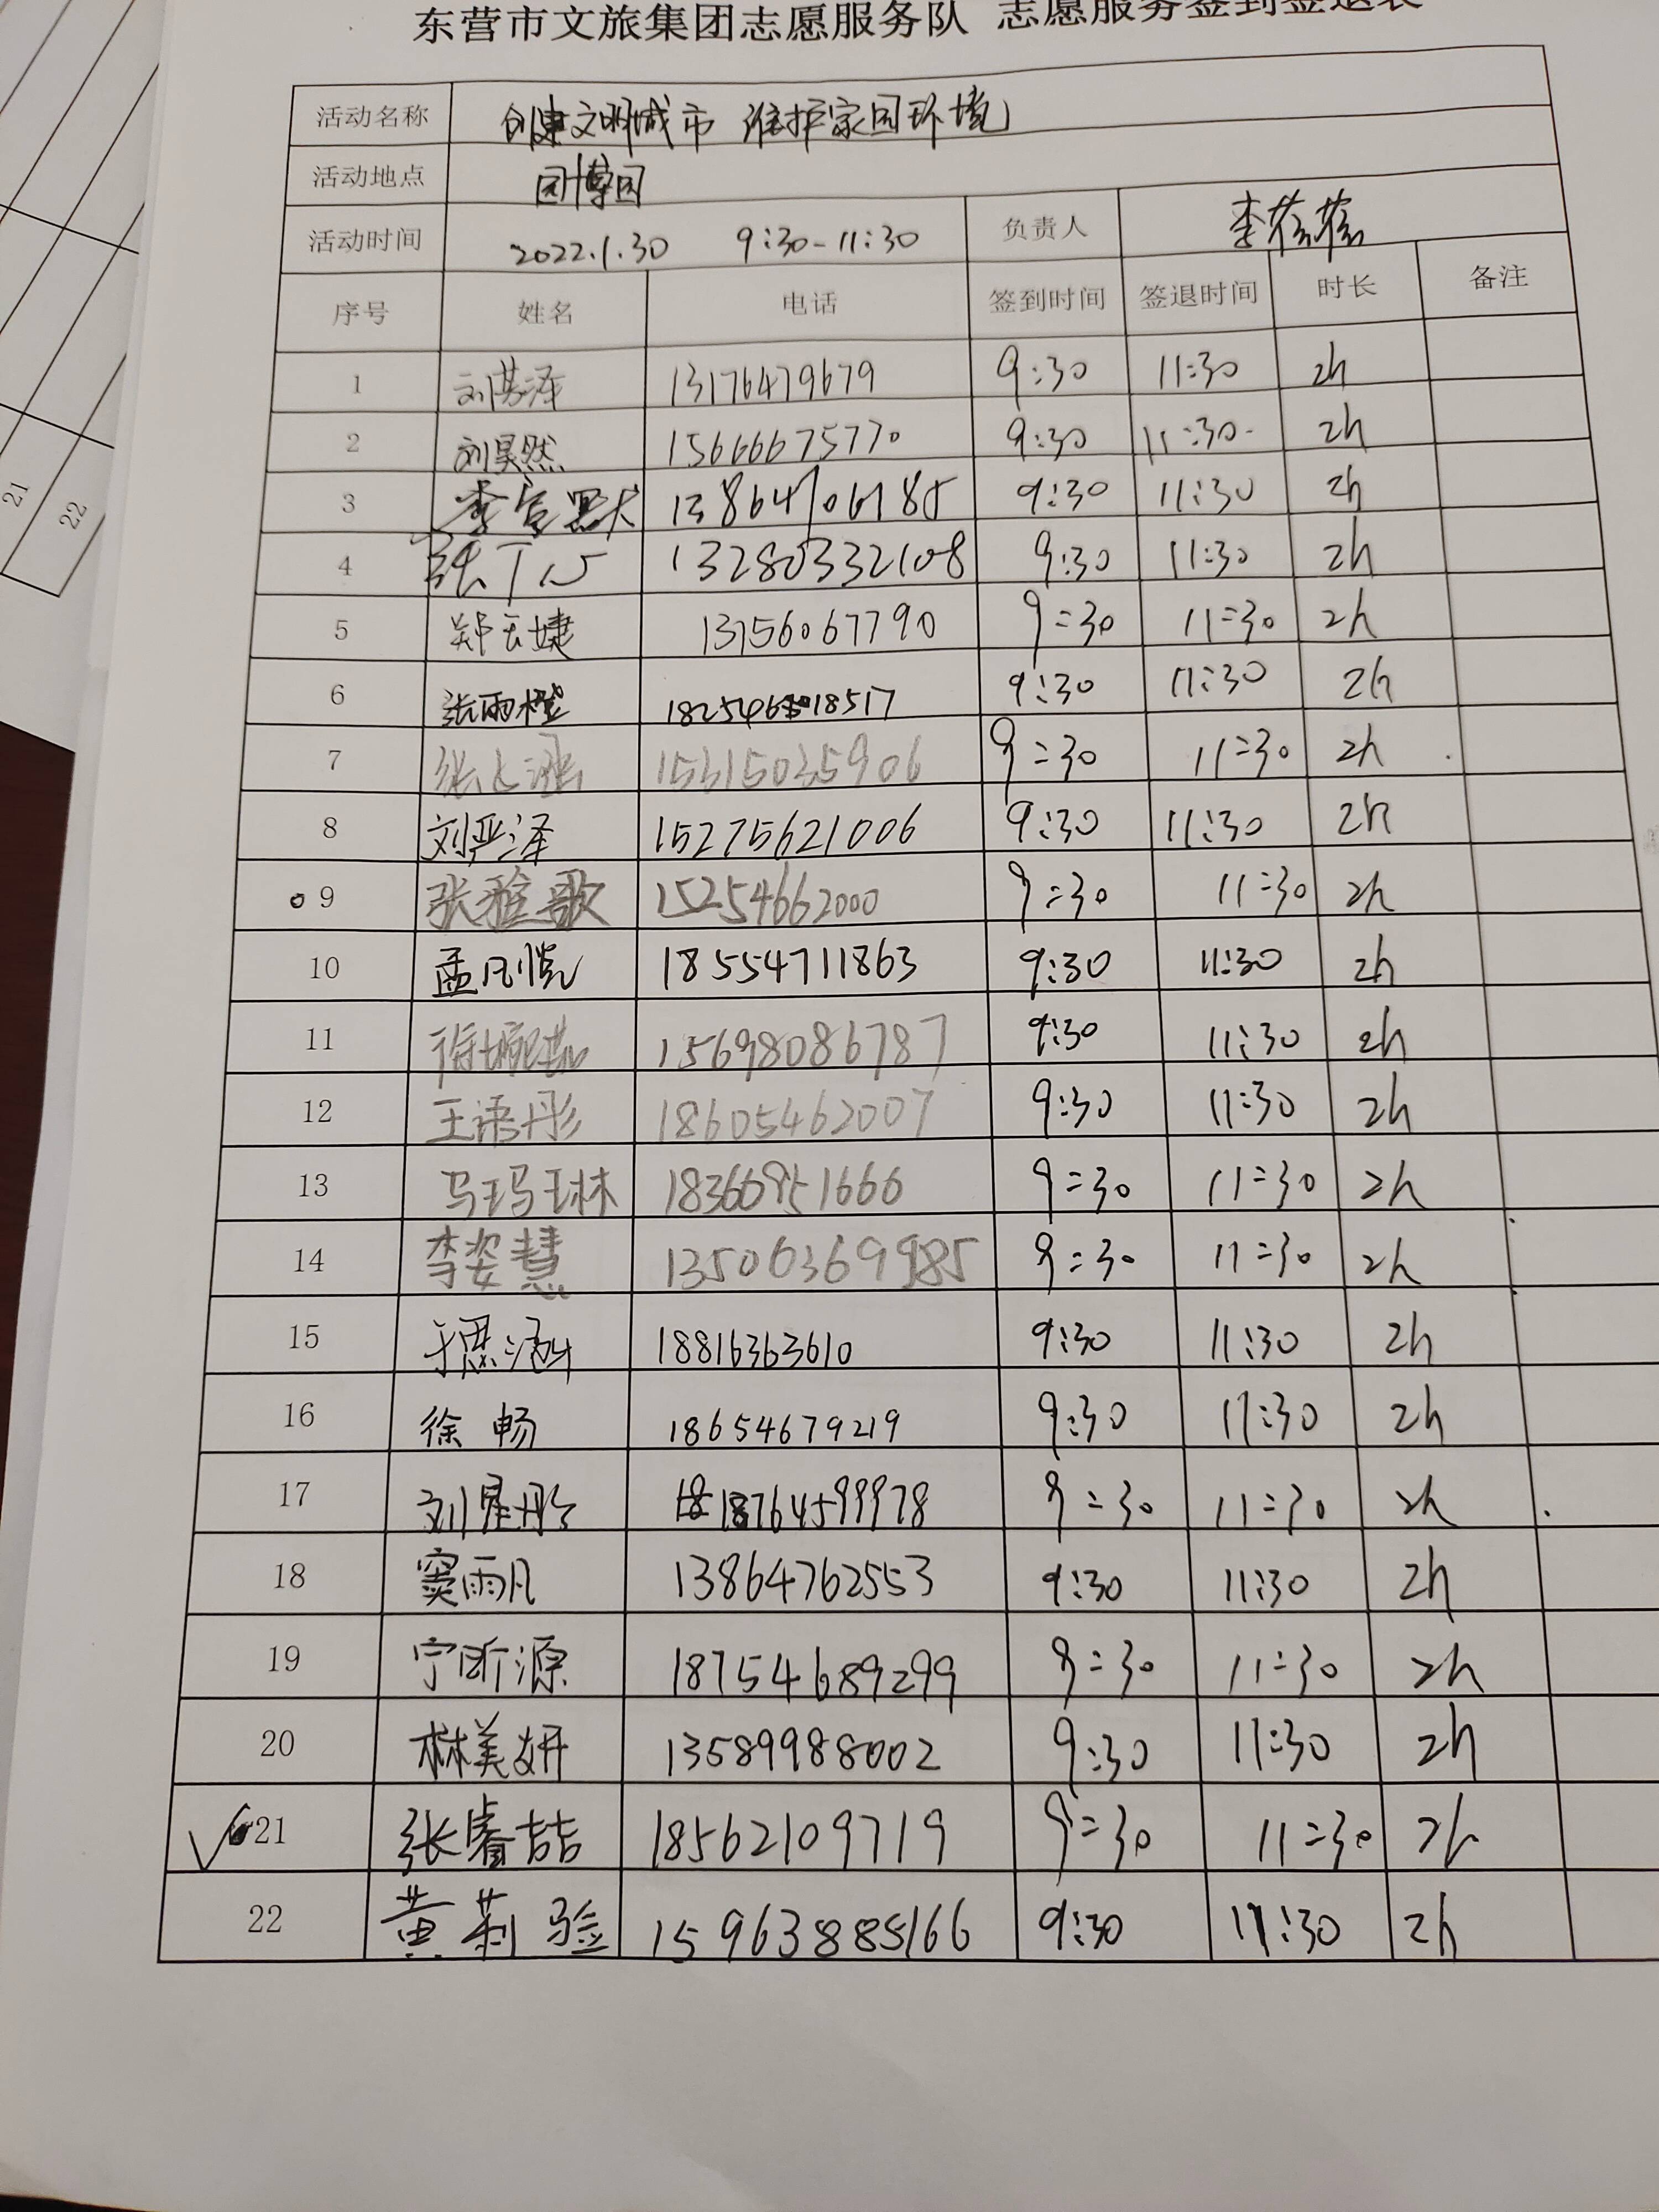 东营市文旅集团志愿服务队 志愿服务签到签退表
活动名称 创建文明城市 维护家园环境
活动地点 园博园
活动时间 2022.1.30 9:30-11:30 负责人 李蓓蓓
序号 姓名 电话 签到时间 签退时间 时长 备注
1 刘芸泽 13176479679 9:30 11:30 2h
2 刘昊然 15666675770 9:30 11:30 2h
3 李宣默 13864706185 9:30 11:30 2h
4 张丁心 13280332108 9:30 11:30 2h
5 郑云婕 13756067790 9:30 11:30 2h
6 张雨橙 9:30 11:30 2h
7 15315035906 9:30 11:30 2h
8 刘严泽 15275621006 9:30 11:30 2h
9 张雅歌 15254662000 9:30 11:30 2h
10 孟凡恺 18554711863 9:30 11:30 2h
11 15698086787 9:30 11:30 2h
12 王语彤 18605462007 9:30 11:30 2h
13 马玛琳 18366951666 9:30 11:30 2h
14 李姿慧 13506369985 9:30 11:30 2h
15 18816363610 9:30 11:30 2h
16 徐畅 18654679219 9:30 11:30 2h
17 刘星彤 18764599978 9:30 11:30 2h
18 窦雨凡 13864762553 9:30 11:30 2h
19 宁昕源 18754689299 9:30 11:30 2h
20 林美妍 13589988002 9:30 11:30 2h
21 张睿喆 18562109719 9:30 11:30 2h
22 黄莉验 15963885166 9:30 11:30 2h
21
22